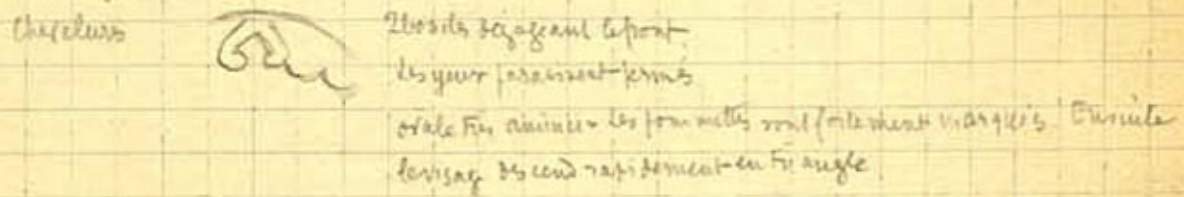 Chevelure
dégageant le front
Les yeux paraissent fermés
ovale très aminci - Les pommettes sont fortement marquées. Ensuite
le visage descend rapidement en triangle